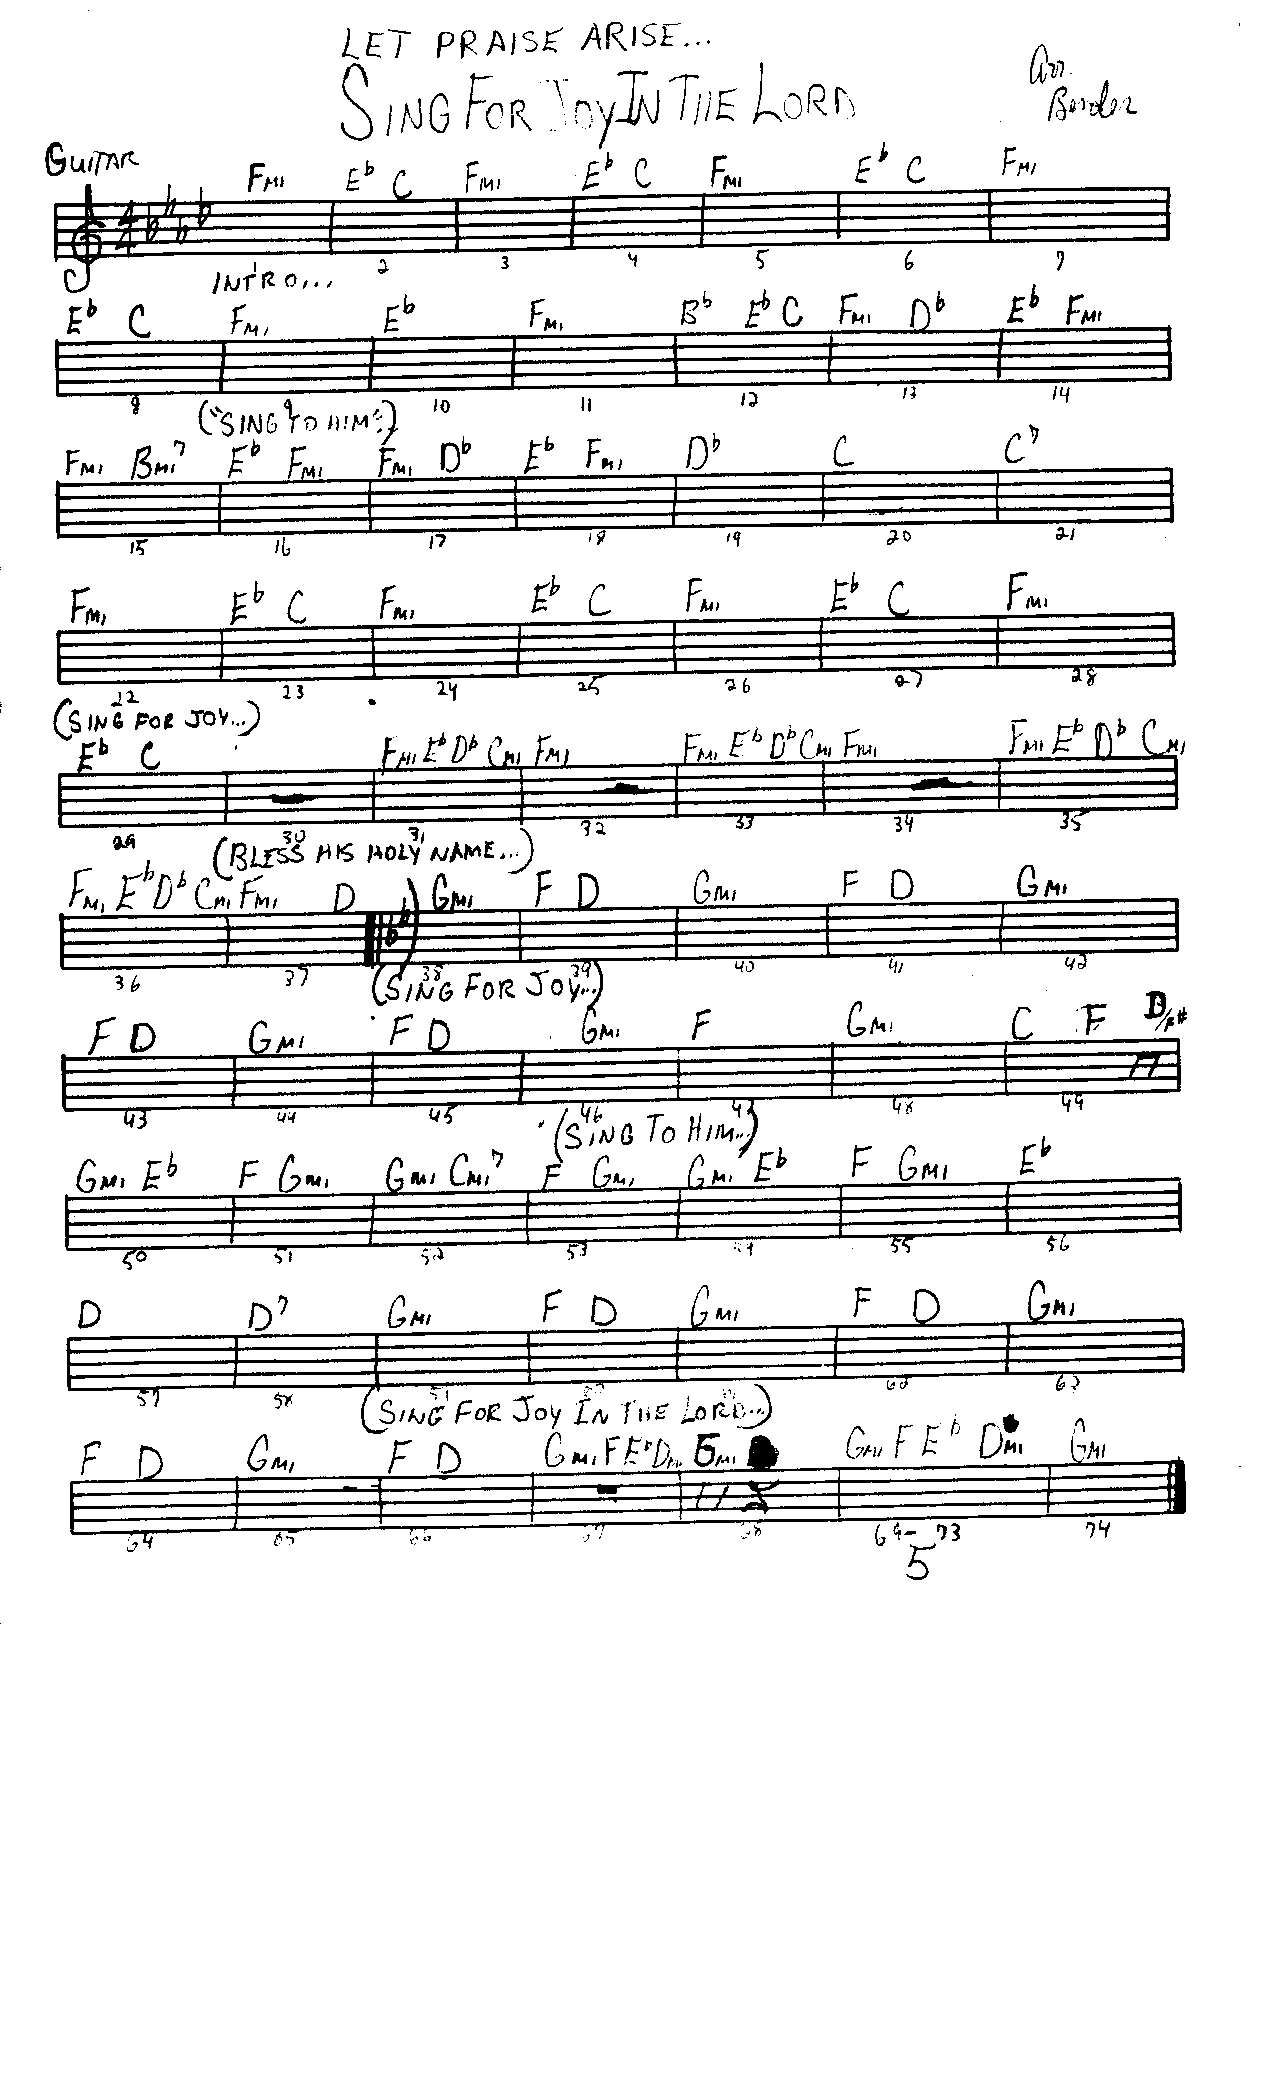 LET PRAISE ARISE...
SING FOR JOY IN THE LORD
Arr. Bender
GUITAR
FMI E♭ C FMI E♭ C FMI E♭ C FMI
4/4
2 3 4 5 6 7
INTRO...
E♭ C FMI E♭ FMI B♭ E♭ C FMI D♭ E♭ FMI
8 9 10 11 12 13 14
("SING TO HIM")
FMI BMI7 E♭ FMI FMI D♭ E♭ FMI D♭ C C7
15 16 17 18 19 20 21
FMI E♭ C FMI E♭ C FMI E♭ C FMI
22 23 24 25 26 27 28
(SING FOR JOY...)
E♭ C FMI E♭ D♭ CMI FMI FMI E♭ D♭ CMI FMI FMI E♭ D♭ CMI
29 30 31 32 33 34 35
(BLESS HIS HOLY NAME...)
FMI E♭ D♭ CMI FMI D GMI F D GMI F D GMI
36 37 38 39 40 41 42
(SING FOR JOY...)
F D GMI F D GMI F GMI C F D/F#
43 44 45 46 47 48 49
(SING TO HIM...)
GMI E♭ F GMI GMI CMI7 F GMI GMI E♭ F GMI E♭
50 51 52 53 54 55 56
D D7 GMI F D GMI F D GMI
57 58 62 63
(SING FOR JOY IN THE LORD...)
F D GMI F D GMI F E♭ DMI GMI GMI F E♭ DMI GMI
64 65 66 67 68 69-73 74
5